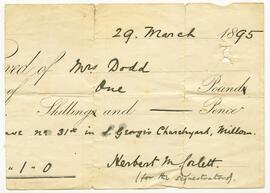 29. March 1895
ved of Mrs Dodd
of One Pound
Shillings and — Pence
ave no 31st in S. George's Churchyard, Millom.
"1-0 Herbert M Corlett
(for the Sequestrators)